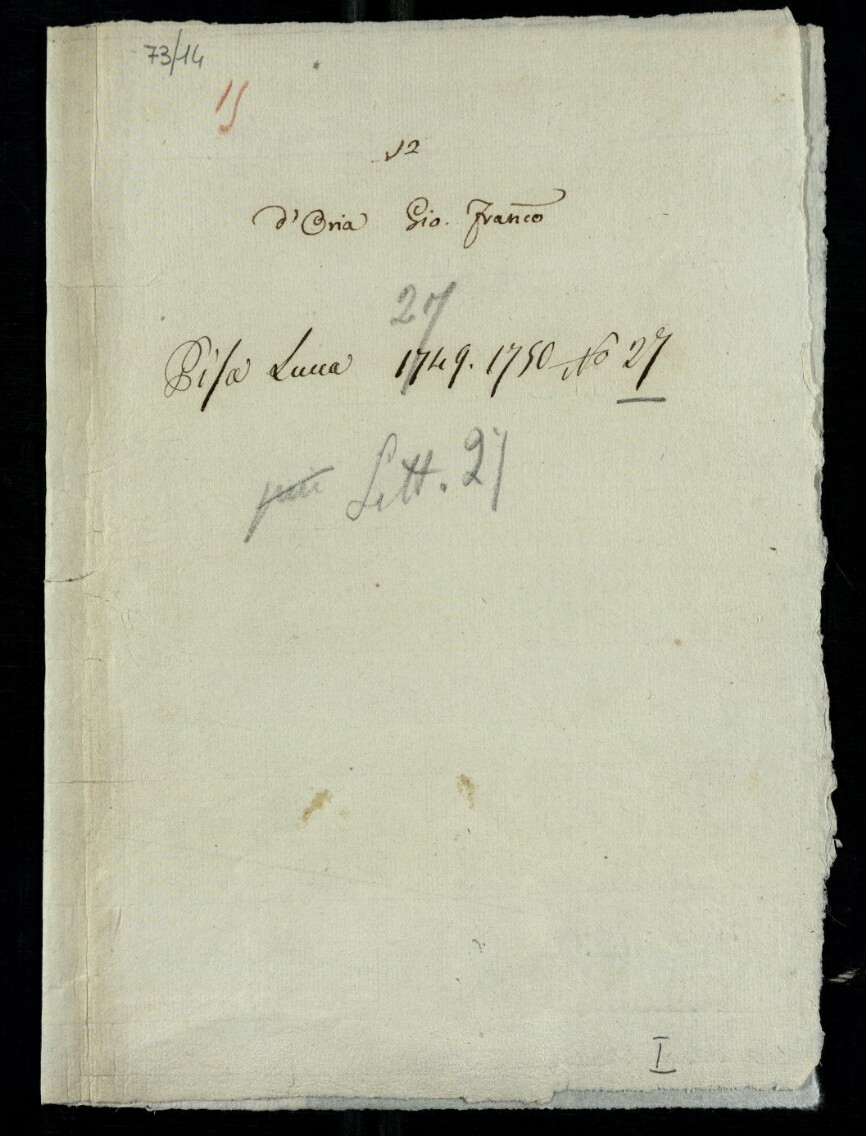 73/14
15
12
d'Oria Gio. Fran.co
27
Pisa Lucca 1749. 1750 No 27
Litt. 27
I